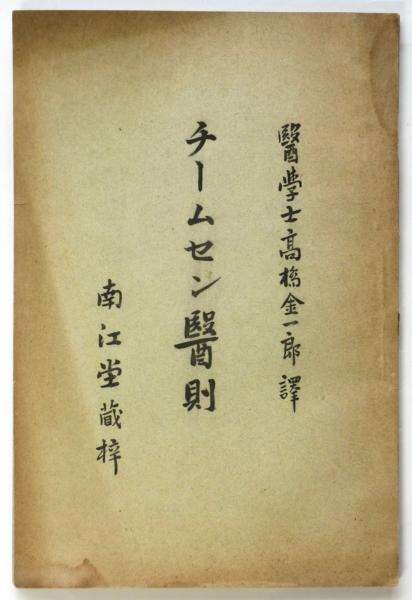 醫學士高橋金一郎譯
チームセン醫則
南江堂蔵梓